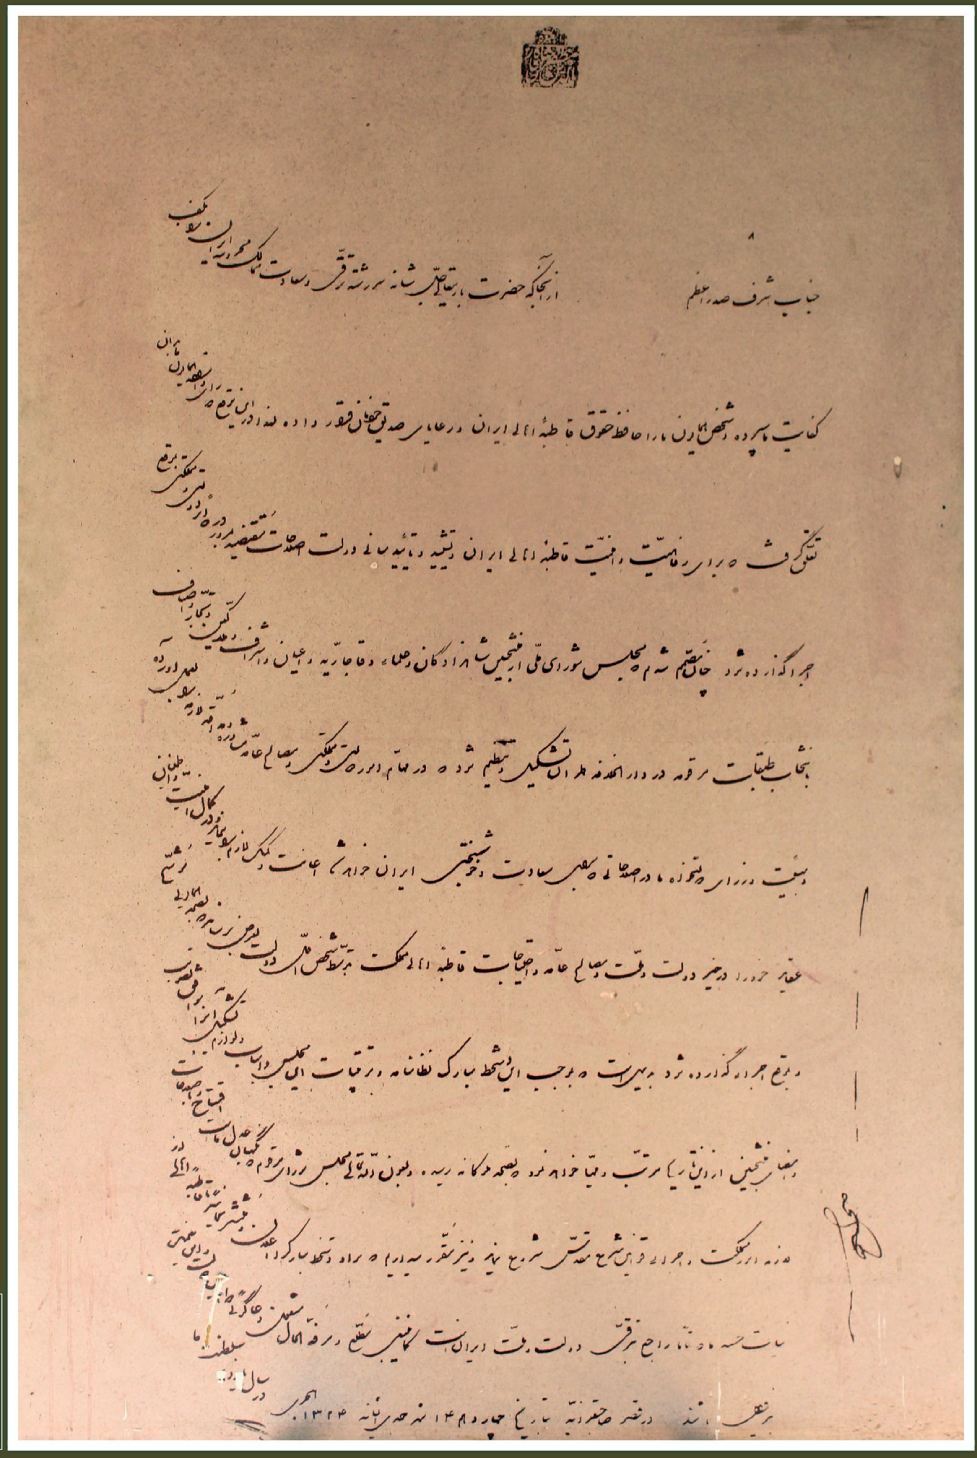 جناب اشرف صدراعظم از آنجا که حضرت باریتعالی جلّ شانه سررشته ترقّی و سعادت ممالک محروسه ایران را بکف
کفایت ما سپرده و شخص همایون ما را حافظ حقوق قاطبهٔ اهالی ایران و رعایای صدیق خودمان قرار داده لهذا در این موقع که رای و همایون ما بدان
تعلّق گرفت که برای رفاهیّت و امنیّت قاطبهٔ اهالی ایران و تشیید و تأیید مبانی دولت اصلاحات مقتضیه بمرور در دوائر دولتی و مملکتی بموقع
اجرا گذارده شود چنان مصمّم شدیم که مجلس شورای ملّی از منتخبین شاهزادگان و علماء و قاجاریّه و اعیان و اشراف و ملّاکین و تجّار و اصناف
بانتخاب طبقات مرقومه در دارالخلافه طهران تشکیل و تنظیم شود که در مهام امور دولتی و مملکتی و مصالح عامّه مشاوره و مداقّه لازمه را بعمل آورده
و بهیئت وزرای دولتخواه ما در اصلاحاتی که برای سعادت و خوشبختی ایران خواهد شد اعانت و کمک لازم را بنماید و در کمال امنیّت و اطمینان
عقاید خود را در خیر دولت و ملّت و مصالح عامّه و احتیاجات قاطبه اهالی مملکت بتوسّط شخص اوّل دولت بعرض برساند که بصحه همایونی موشّح
و بموقع اجرا گذارده شود بدیهی است که بموجب این دستخط مبارک نظامنامه و ترتیبات این مجلس و اسباب و لوازم تشکیل آنرا موافق تصویب
و امضای منتخبین از این تاریخ مرتّب و مهیّا خواهد نمود که بصحه ملوکانه رسیده و بعون الله تعالی مجلس شورای مرقوم که نگهبان عدل ماست افتتاح و باصلاحات
لازمه امور مملکت و اجرای قوانین شرع مقدّس شروع نماید و نیز مقرّر میداریم که سواد دستخط مبارک را اعلان و منتشر نمائید تا قاطبه اهالی از
نیات حسنه ما که تماماً راجع بترقّی دولت و ملّت ایران است کماینبغی مطّلع و مرفّه الحال مشغول دعاگوئی دولت و این نعمت
بی‌زوال باشند در قصر صاحبقرانیّه بتاریخ چهاردهم ۱۴ شهر جمادی الثانیه ۱۳۲۴ هجری در سال سلطنت ما